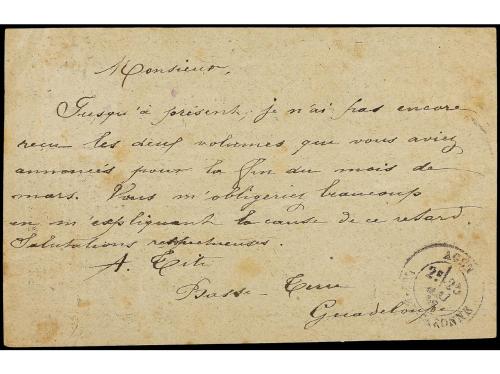 Monsieur,
Jusqu'à présent, je n'ai pas encore
reçu les deux volumes que vous aviez
annoncés pour la fin du mois de
mars. Vous m'obligeriez beaucoup
en m'expliquant la cause de ce retard.
Salutations respectueuses.
A.
Basse-Terre
Guadeloupe
AGEN
2E 25
MAI
GARONNE